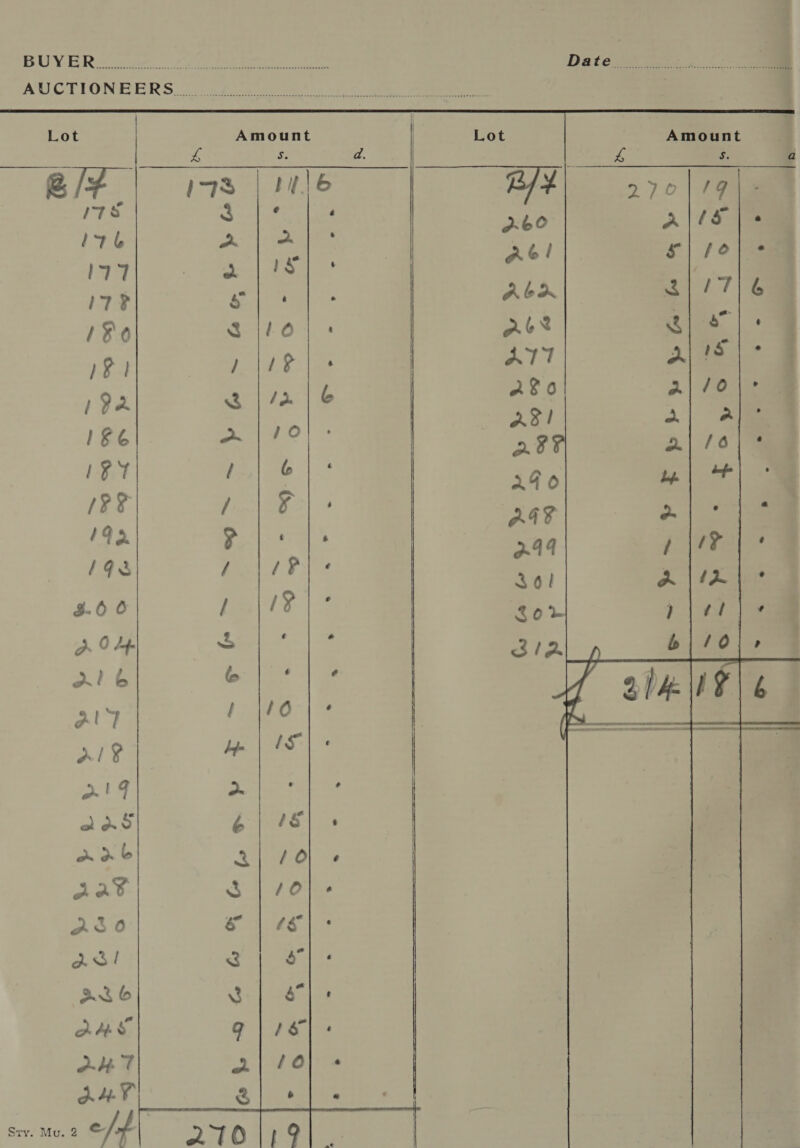 BUYER Date
AUCTIONEERS
Lot Amount Lot Amount
£ s. d. £ s. d
B/F 173 11 6 B/F 270 19 -
175 3 . . 260 2 15 .
176 2 2 . 261 5 10 .
177 2 15 . 262 3 17 6
178 5 . . 263 3 5 .
180 3 10 . 277 2 15 .
181 1 18 . 280 2 10 .
182 3 12 6 281 2 2 .
186 2 10 . 288 2 10 .
187 1 6 . 290 4 4 .
188 1 8 . 298 2 . .
192 8 . . 299 1 18 .
193 1 18 . 301 2 12 .
200 1 18 . 302 1 11 .
204 3 . . 312 6 10 .
216 6 . . £ 314 18 6
217 1 10 .
218 4 15 .
219 2 . .
225 6 15 .
226 3 10 .
228 3 10 .
230 5 15 .
231 3 5 .
236 3 5 .
245 9 15 .
247 2 10 .
248 3 . .
Sty. Mu. 2 c/f 270 19 .